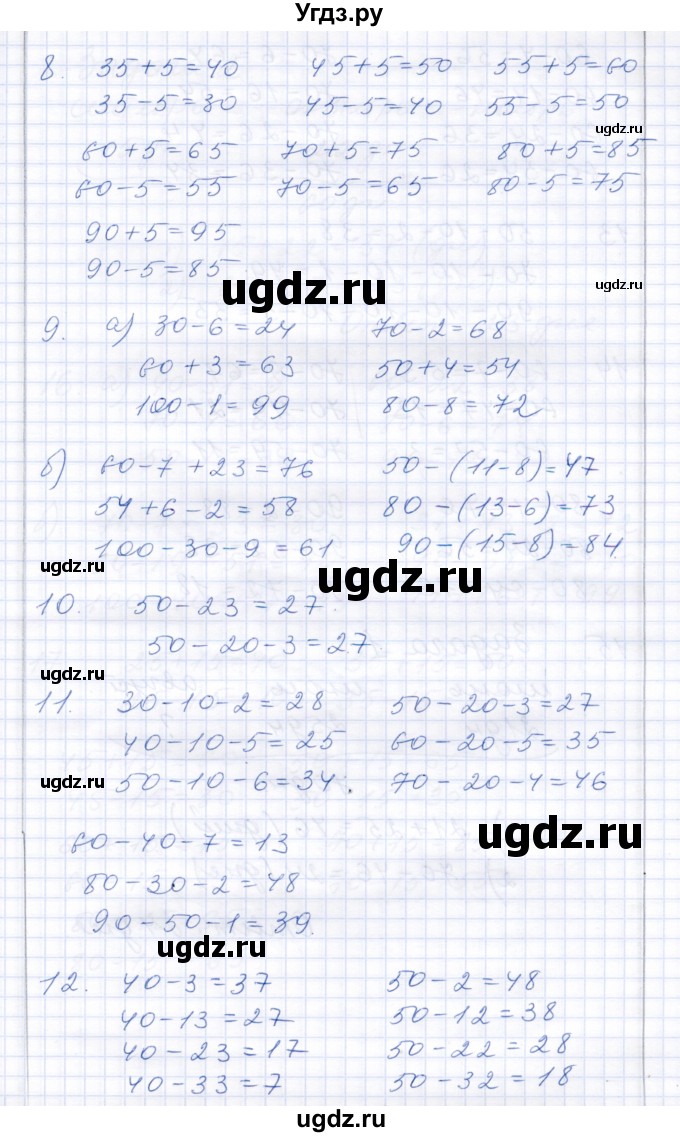 Угдз.ру
8. 35+5=40 45+5=50 55+5=60
35-5=30 45-5=40 55-5=50
ugdz.ru
60+5=65 70+5=75 80+5=85
60-5=55 70-5=65 80-5=75
90+5=95
90-5=85
ugdz.ru
ugdz.ru
9. а) 30-6=24 70-2=68
60+3=63 50+4=54
100-1=99 80-8=72
б) 60-7+23=76 50-(11-8)=47
54+6-2=58 80-(13-6)=73
100-30-9=61 90-(15-8)=84
ugdz.ru
ugdz.ru
10. 50-23=27.
50-20-3=27
ugdz.ru
11. 30-10-2=28 50-20-3=27
40-10-5=25 60-20-5=35
ugdz.ru
50-10-6=34. 70-20-4=46
ugdz.ru
60-40-7=13
80-30-2=48
90-50-1=39.
ugdz.ru
12. 40-3=37 50-2=48
40-13=27 50-12=38
40-23=17 50-22=28
40-33=7 50-32=18
ugdz.ru